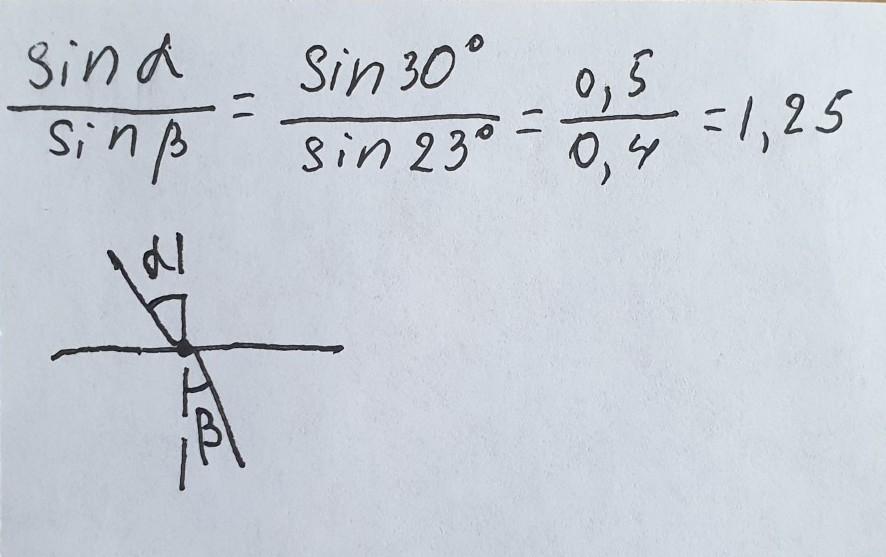 sin α / sin β = sin 30° / sin 23° = 0,5 / 0,4 = 1,25
α
β